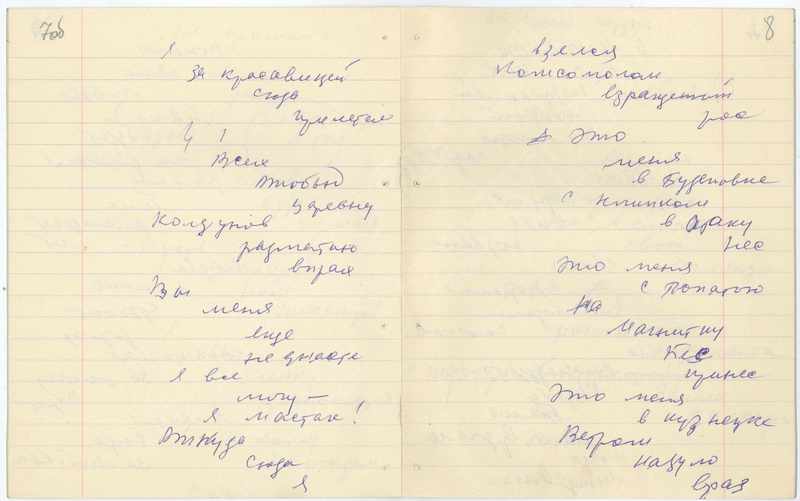 7об
Я
за красавицей
сюда
прилетел
Ч 1
Всех
Отобью
Царевну
Колдунов
разметаю
впрах
Вы
меня
еще
не знаете
Я все
могу —
Я мастак!
Откуда
сюда
я
8
взялся
Комсомолом
взращенный
рос
Это
меня
в Буденовке
с клинком
в атаку
нес
Это меня
с лопатою
На
Магнитку
бес
принес
Это меня
в кузнецке
Ветром
надуло
враз